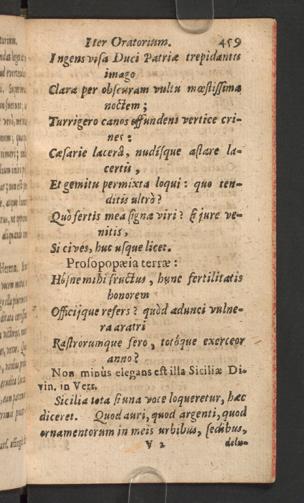 Iter Oratorium. 459
Ingens visa Duci Patriæ trepidantis
imago
Clara per obscuram vultu mœstissima
noctem;
Turrigero canos effundens vertice cri-
nes:
Cæsarie lacerâ, nudísque astare la-
certis,
Et gemitu permixta loqui: quo ten-
ditis ultrò?
Quò fertis mea signa viri? si jure ve-
nitis,
Si cives, huc usque licet.
Prosopopæia terræ:
Hósne mihi fructus, hunc fertilitatis
honorem
Officijque refers? quòd adunci vulne-
ra aratri
Rastrorumque fero, totóque exerceor
anno?
Non minùs elegans est illa Siciliæ Di-
vin. in Verr.
Sicilia tota si una voce loqueretur, hæc
diceret. Quod auri, quod argenti, quod
ornamentorum in meis urbibus, sedibus,
V 2 delu-